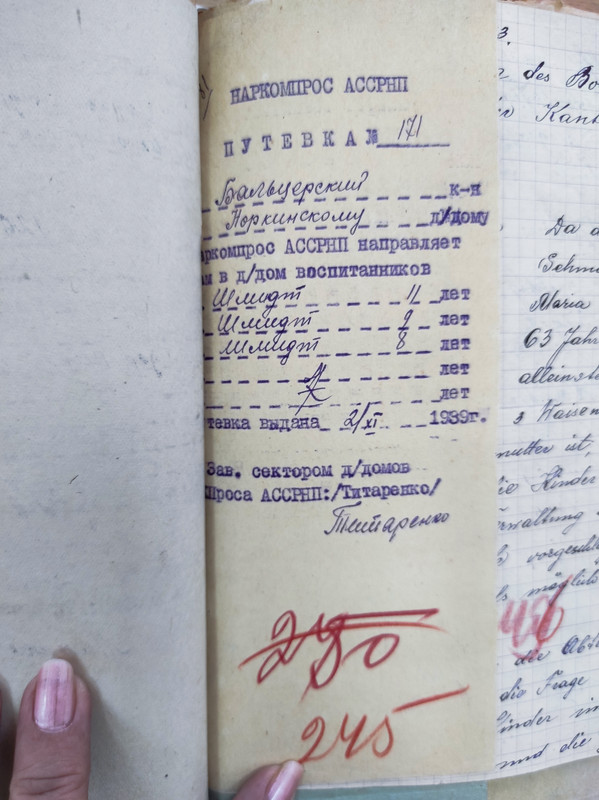 НАРКОМПРОС АССРНП
ПУТЕВКА № 171
Бальцерский к-н
Норкинскому д/дому
аркомпрос АССРНП направляет
ам в д/дом воспитанников
Шмидт 11 лет
Шмидт 9 лет
Шмидт 8 лет
лет
лет
тевка выдана 2/XI 1939г.
Зав. сектором д/домов
Проса АССРНП:/Титаренко/
Титаренко
250
245
3.
des Bo
Kant
Da
Schm
Maria
63 Jahr
alleinste
3 Waisen
mutter ist,
die Kinder
rwaltung
vorgeschl
möglich
die Frage
Kinder in
und die